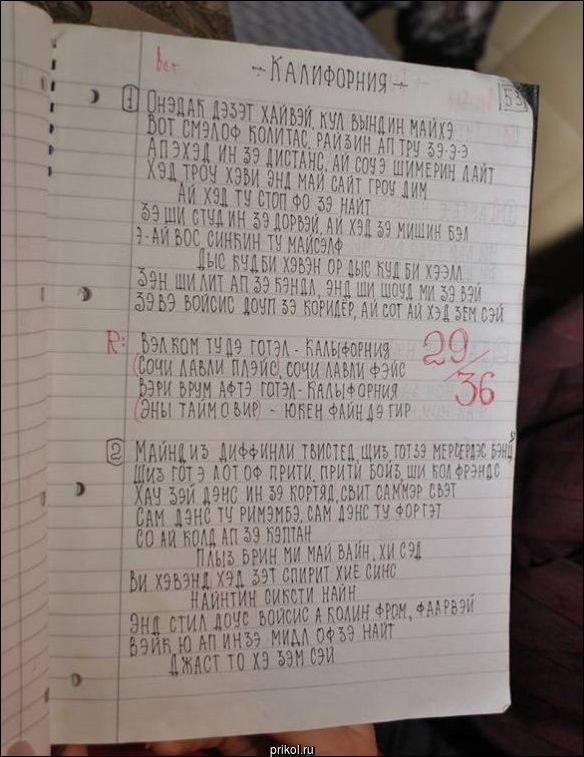 вет
÷ КАЛИФОРНИЯ ÷
53
1 ОНЭДАК ДЭЗЭТ ХАЙВЭЙ, КУЛ ВЫНДИН МАЙХЭ
ВОТ СМЭЛОФ КОЛИТАС, РАЙЗИН АП ТРУ ЗЭ-Э-Э
АПЭХЭД ИН ЗЭ ДИСТАНС, АЙ СОУЭ ШИМЕРИН ЛАЙТ
ХЭД ГРОУ ХЭВИ ЭНД МАЙ САЙТ ГРОУ ДИМ
АЙ ХЭД ТУ СТОП ФО ЗЭ НАЙТ
ЗЭ ШИ СТУД ИН ЗЭ ДОРВЭЙ, АЙ ХЭД ЗЭ МИШИН БЭЛ
Э-АЙ ВОС СИНКИН ТУ МАЙСЭЛФ
ДЫС КУД БИ ХЭВЭН ОР ДЫС КУД БИ ХЭЭЛЛ
ЗЭН ШИ ЛИТ АП ЗЭ КЭНДЛ, ЭНД ШИ ШОУД МИ ЗЭ ВЭЙ
ЗЭВЭ ВОЙСИС ДОУП ЗЭ КОРИДЕР, АЙ СОТ АЙ ХЭД ЗЕМ СЭЙ
R: ВЭЛКОМ ТУ ДЭ ГОТЭЛ - КАЛЫФОРНИЯ
(СОЧИ ЛАВЛИ ПЛЭЙС), СОЧИ ЛАВЛИ ФЭЙС
ВЭРИ ВРУМ АФТЭ ГОТЭЛ - КАЛЫФОРНИЯ
(ЭНЫ ТАЙМ О ВИР) - ЮКЕН ФАЙН ДЭ ГИР
29/36
2 МАЙНД ИЗ ДИФФИНЛИ ТВИСТЕД, ЩИЗ ГОТ ЗЭ МЕРСЕРДЭС БЭНЦ
ШИЗ ГОТ Э ЛОТ ОФ ПРИТИ, ПРИТИ БОЙЗ, ШИ КОЛ ФРЭНДС
ХАУ ЗЭЙ ДЭНС ИН ЗЭ КОРТЯД, СВИТ САММЭР СВЭТ
САМ ДЭНС ТУ РИМЭМБЭ, САМ ДЭНС ТУ ФОРГЭТ
СО АЙ КОЛД АП ЗЭ КЭПТАН
ПЛЫЗ БРИН МИ МАЙ ВАЙН, ХИ СЭД
ВИ ХЭВЭНД ХЭД ЗЭТ СПИРИТ ХИЕ СИНС
НАЙНТИН СИКСТИ НАЙН
ЭНД СТИЛ ДОУС ВОЙСИС А КОЛИН ФРОМ, ФААРВЭЙ
ВЭЙК Ю АП ИН ЗЭ МИДЛ ОФ ЗЭ НАЙТ
ДЖАСТ ТО ХЭ ЗЭМ СЭЙ
prikol.ru